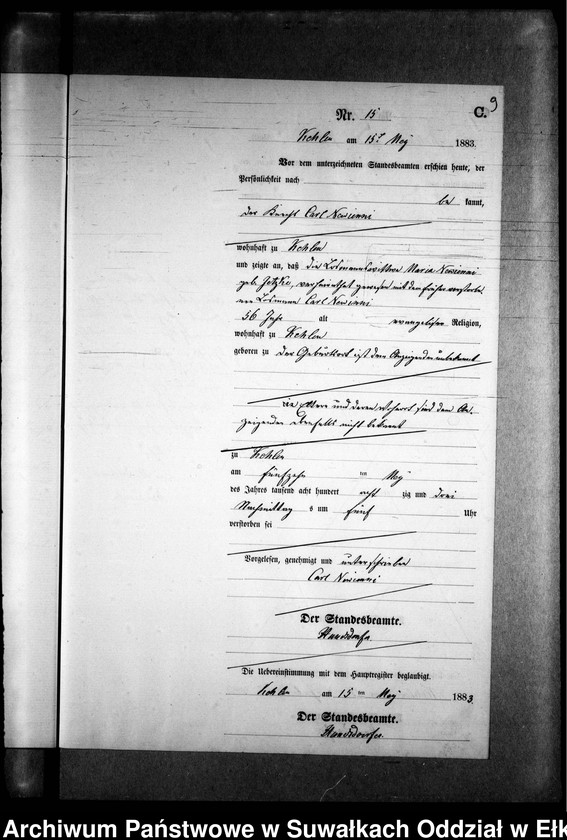 9
Nr. 15 C.
am 15. May 1883.
Vor dem unterzeichneten Standesbeamten erschien heute, der
Persönlichkeit nach
be kannt,
der Knecht Carl
wohnhaft zu
und zeigte an, daß die Losmannswittwe Maria
geb. verheirathet gewesen mit dem früher verstorbe
nen Losmann Carl
56 Jahr alt evangelischer Religion,
wohnhaft zu
geboren zu der Geburtsort ist dem Anzeigenden unbekannt
die Eltern und deren Wohnort sind dem An-
zeigenden ebenfalls nicht bekannt
zu
am fünfzehn ten May
des Jahres tausend acht hundert acht zig und drei
Nachmittag s um fünf Uhr
verstorben sei
Vorgelesen, genehmigt und unterschrieben
Carl
Der Standesbeamte.
Die Uebereinstimmung mit dem Hauptregister beglaubigt.
am 15 ten May 1883.
Der Standesbeamte.
Archiwum Państwowe w Suwałkach Oddział w Ełk